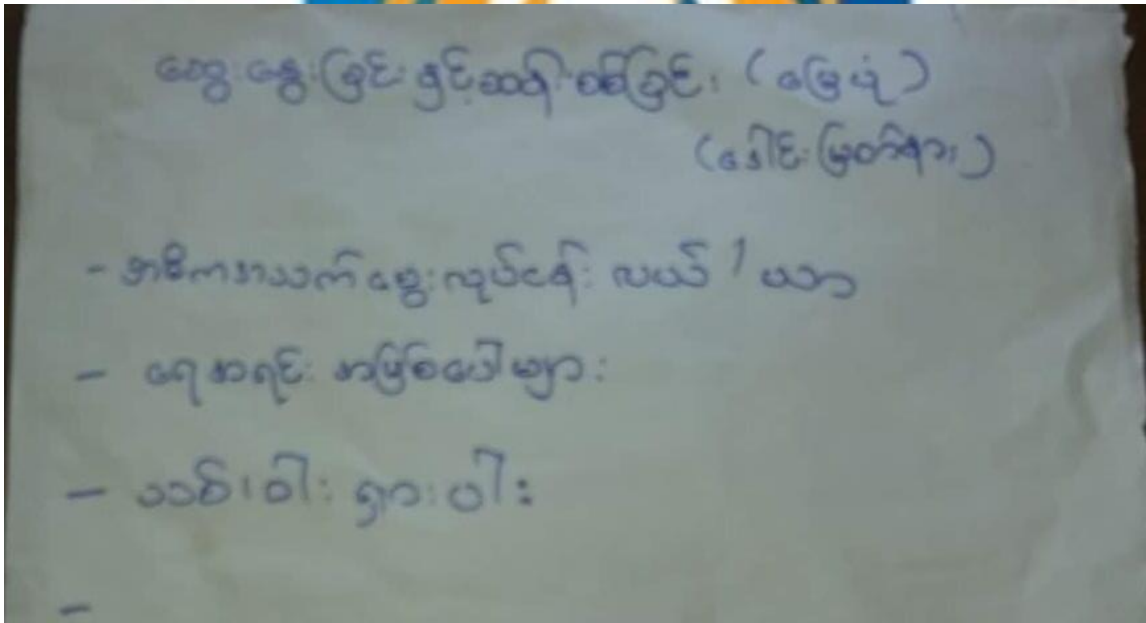 ဆွေးနွေးခြင်းနှင့်ဆန်းစစ်ခြင်း (မြေပုံ)
(ဒေါင်းမြတ်ရား)
- အဓိကအသက်မွေးလုပ်ငန်း လယ် / ယာ
- ရေအရင်းအမြစ်ပေါများ
- သစ်၊ ဝါး ရှားပါး
-